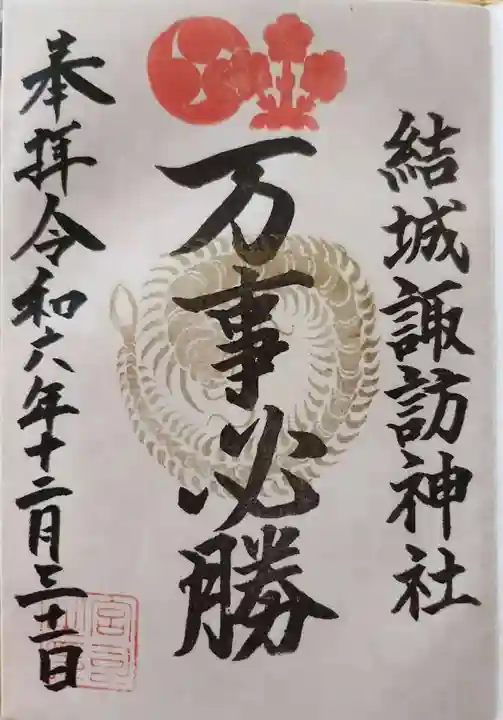 結城諏訪神社
万事必勝
奉拝令和六年十二月三十一日